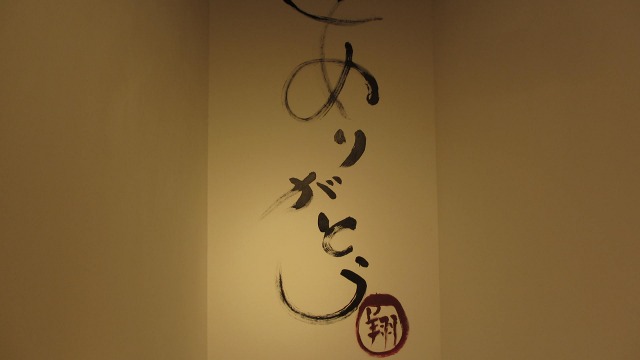 ありがとう
翔